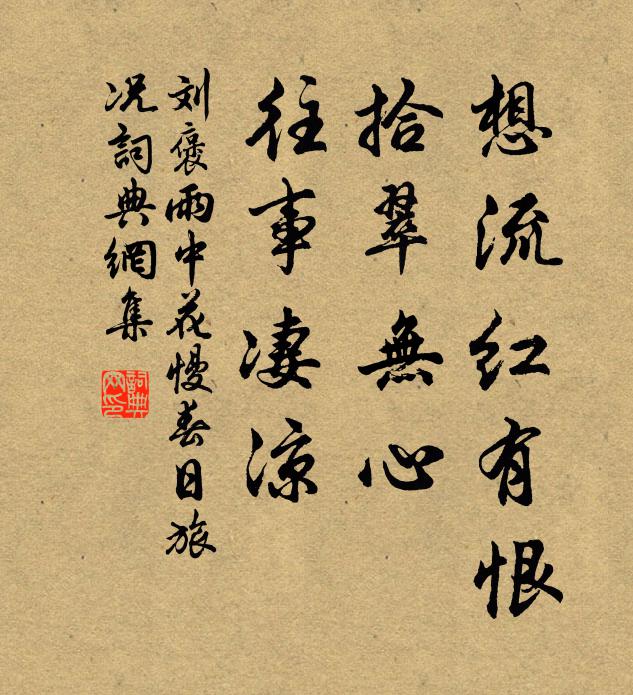 想流红有恨
拾翠無心
往事凄凉
刘褒雨中花慢春日旅
况詞典網集
詞典網印